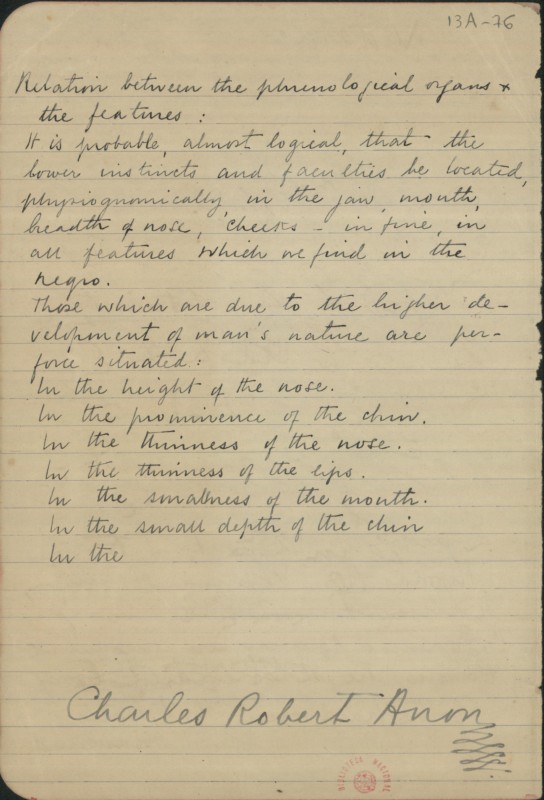 13A-76
Relation between the phrenological organs +
the features :
It is probable, almost logical, that the
lower instincts and faculties be located,
physiognomically, in the jaw, mouth,
breadth of nose, cheeks – in fine, in
all features which we find in the
negro.
Those which are due to the higher de-
velopment of man's nature are per-
force situated :
In the height of the nose.
In the prominence of the chin.
In the thinness of the nose.
In the thinness of the lips.
In the smallness of the mouth.
In the small depth of the chin
In the
Charles Robert Anon
BIBLIOTECA NACIONAL